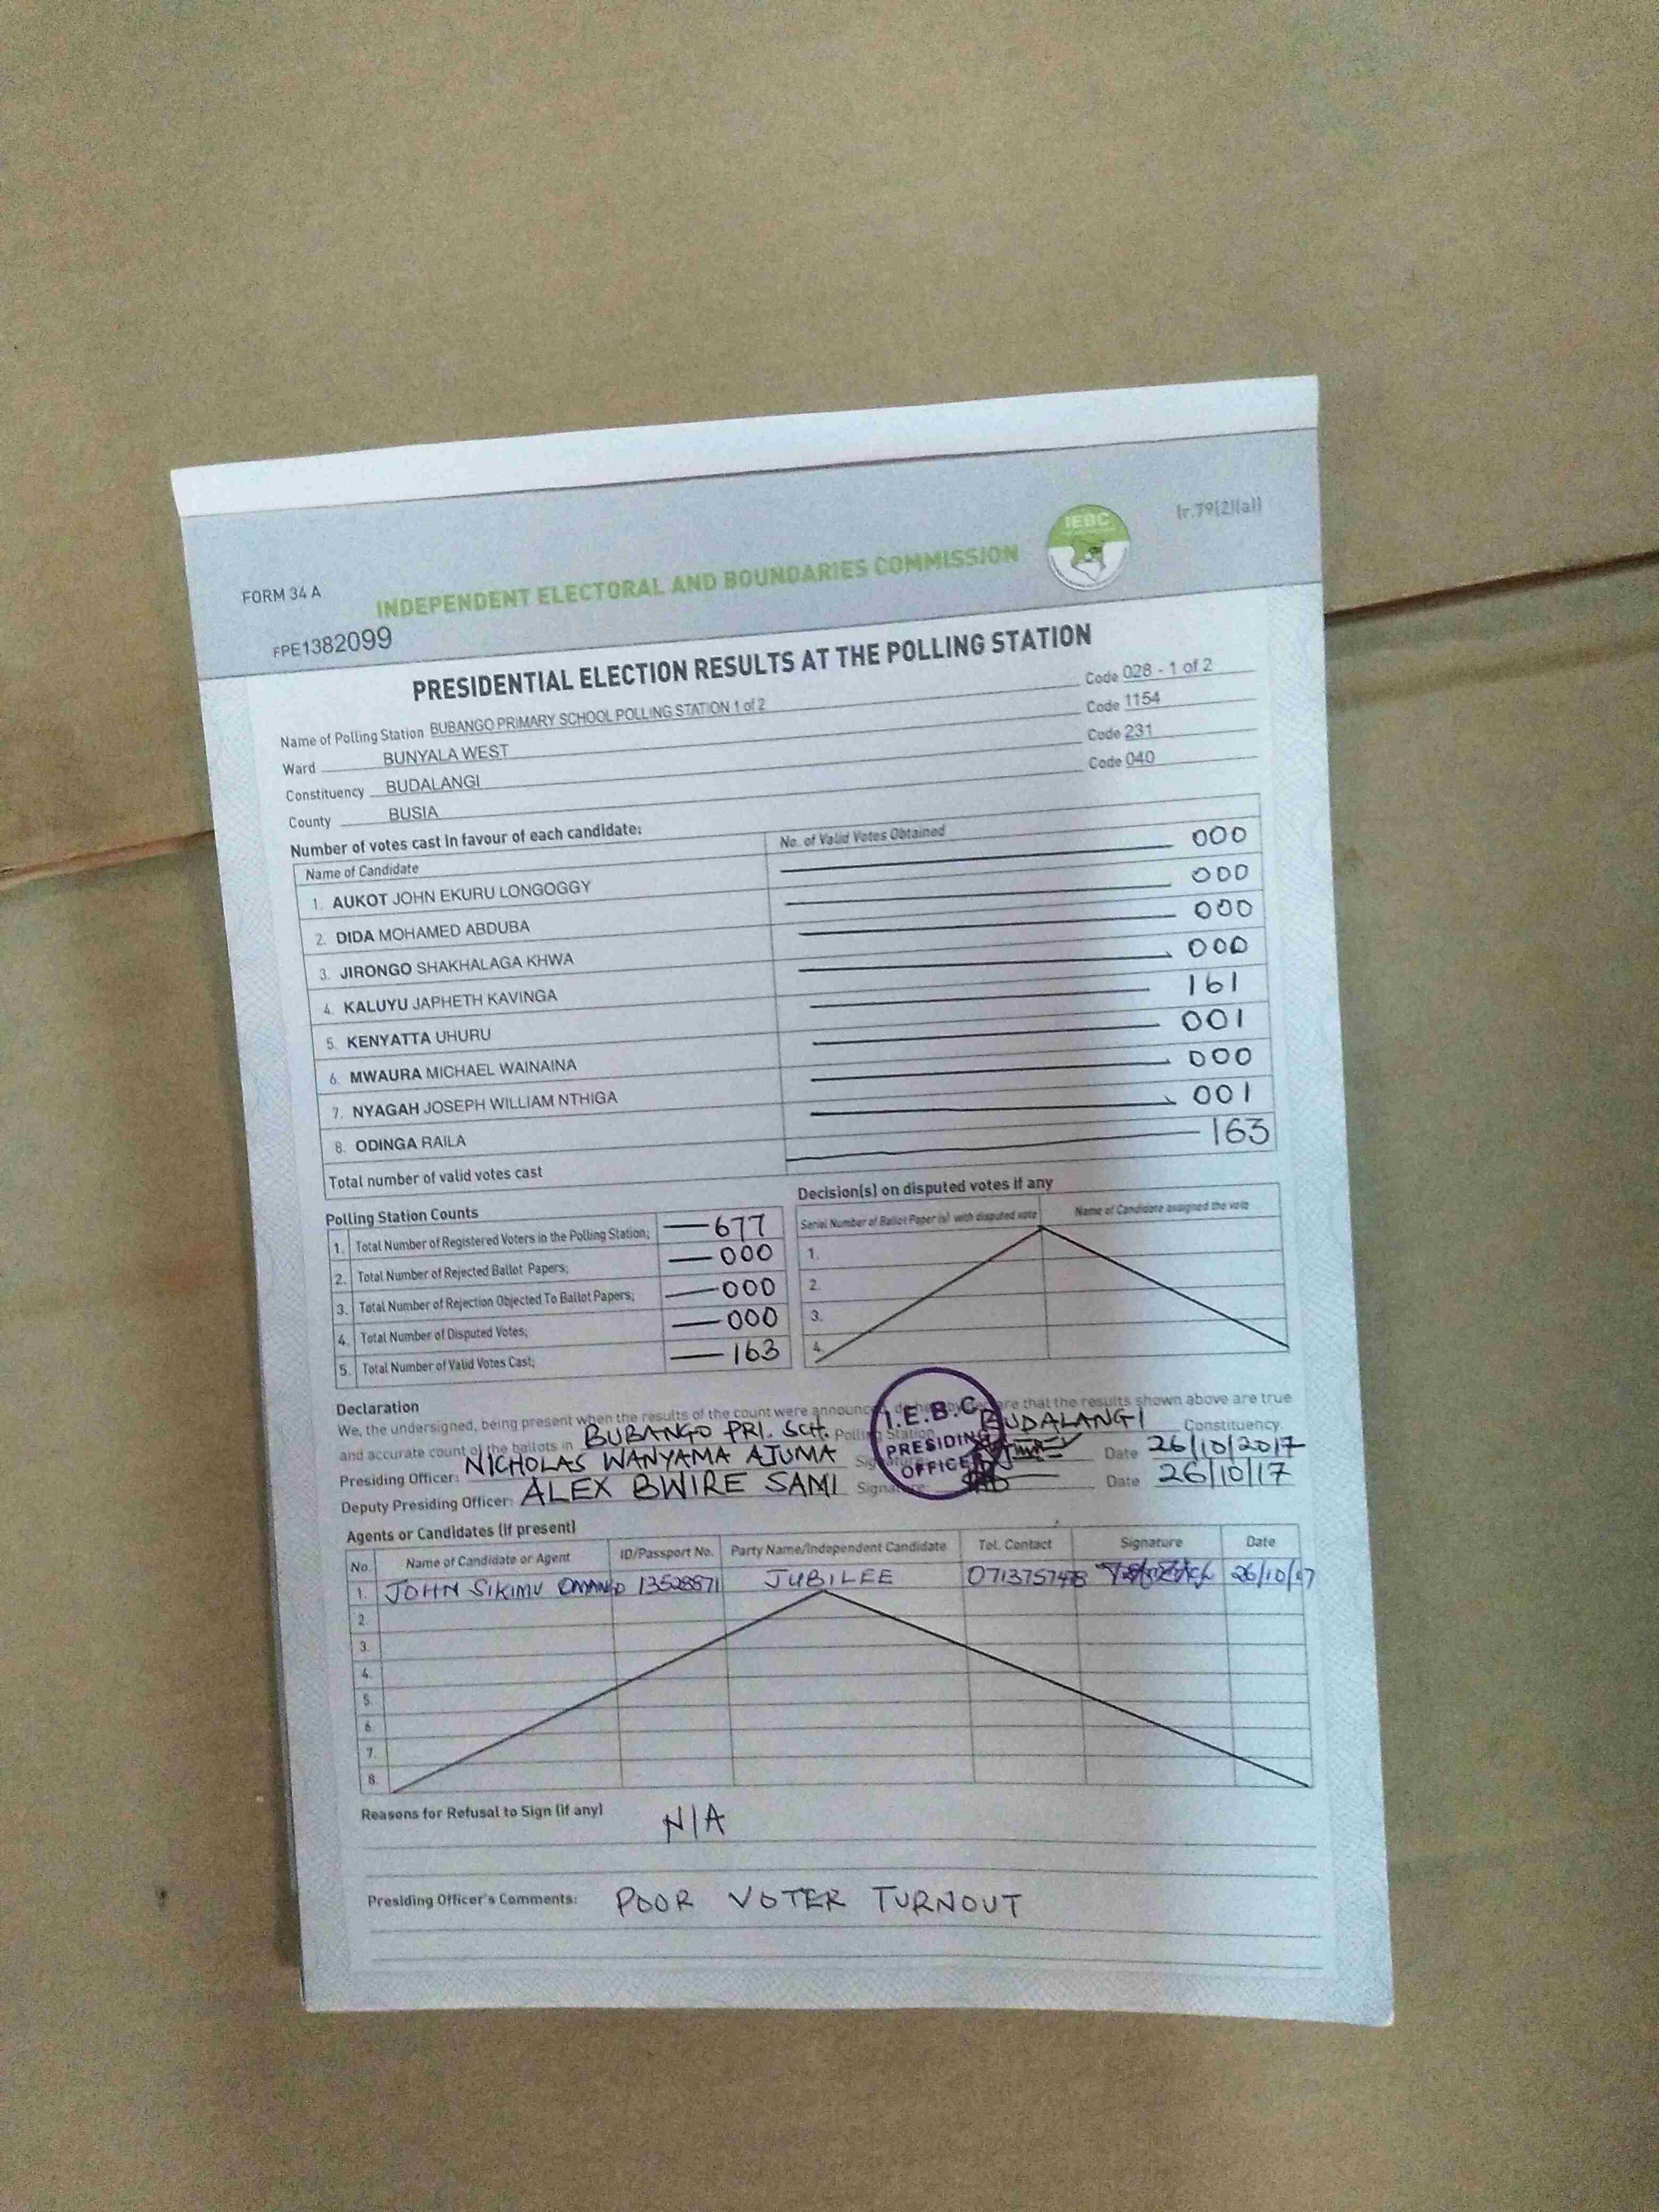 (r.79(2)(a))
IEBC
FORM 34 A
INDEPENDENT ELECTORAL AND BOUNDARIES COMMISSION
FPE1382099
PRESIDENTIAL ELECTION RESULTS AT THE POLLING STATION
Name of Polling Station BUBANGO PRIMARY SCHOOL POLLING STATION 1 of 2 Code 028 - 1 of 2
Ward BUNYALA WEST Code 1154
Constituency BUDALANGI Code 231
County BUSIA Code 040
Number of votes cast in favour of each candidate:
Name of Candidate No. of Valid Votes Obtained
1. AUKOT JOHN EKURU LONGOGGY 000
2. DIDA MOHAMED ABDUBA 000
3. JIRONGO SHAKHALAGA KHWA 000
4. KALUYU JAPHETH KAVINGA 000
5. KENYATTA UHURU 161
6. MWAURA MICHAEL WAINAINA 001
7. NYAGAH JOSEPH WILLIAM NTHIGA 000
8. ODINGA RAILA 001
Total number of valid votes cast 163
Polling Station Counts
1. Total Number of Registered Voters in the Polling Station; 677
2. Total Number of Rejected Ballot Papers; 000
3. Total Number of Rejection Objected To Ballot Papers; 000
4. Total Number of Disputed Votes; 000
5. Total Number of Valid Votes Cast; 163
Decision(s) on disputed votes if any
Serial Number of Ballot Paper(s) with disputed vote Name of Candidate assigned the vote
1.
2.
3.
4.
Declaration
We, the undersigned, being present when the results of the count were announced, do hereby declare that the results shown above are true
and accurate count of the ballots in BUBANGO PRI. SCH. Polling Station BUDALANGI Constituency.
Presiding Officer: NICHOLAS WANYAMA AJUMA Signature: Date 26/10/2017
Deputy Presiding Officer: ALEX BWIRE SAMI Signature: Date 26/10/17
I.E.B.C
PRESIDING
OFFICER
Agents or Candidates (if present)
No. Name of Candidate or Agent ID/Passport No. Party Name/Independent Candidate Tel. Contact Signature Date
1. JOHN SIKIMU 13528871 JUBILEE 26/10/17
2.
3.
4.
5.
6.
7.
8.
Reasons for Refusal to Sign (if any) N/A
Presiding Officer's Comments: POOR VOTER TURNOUT